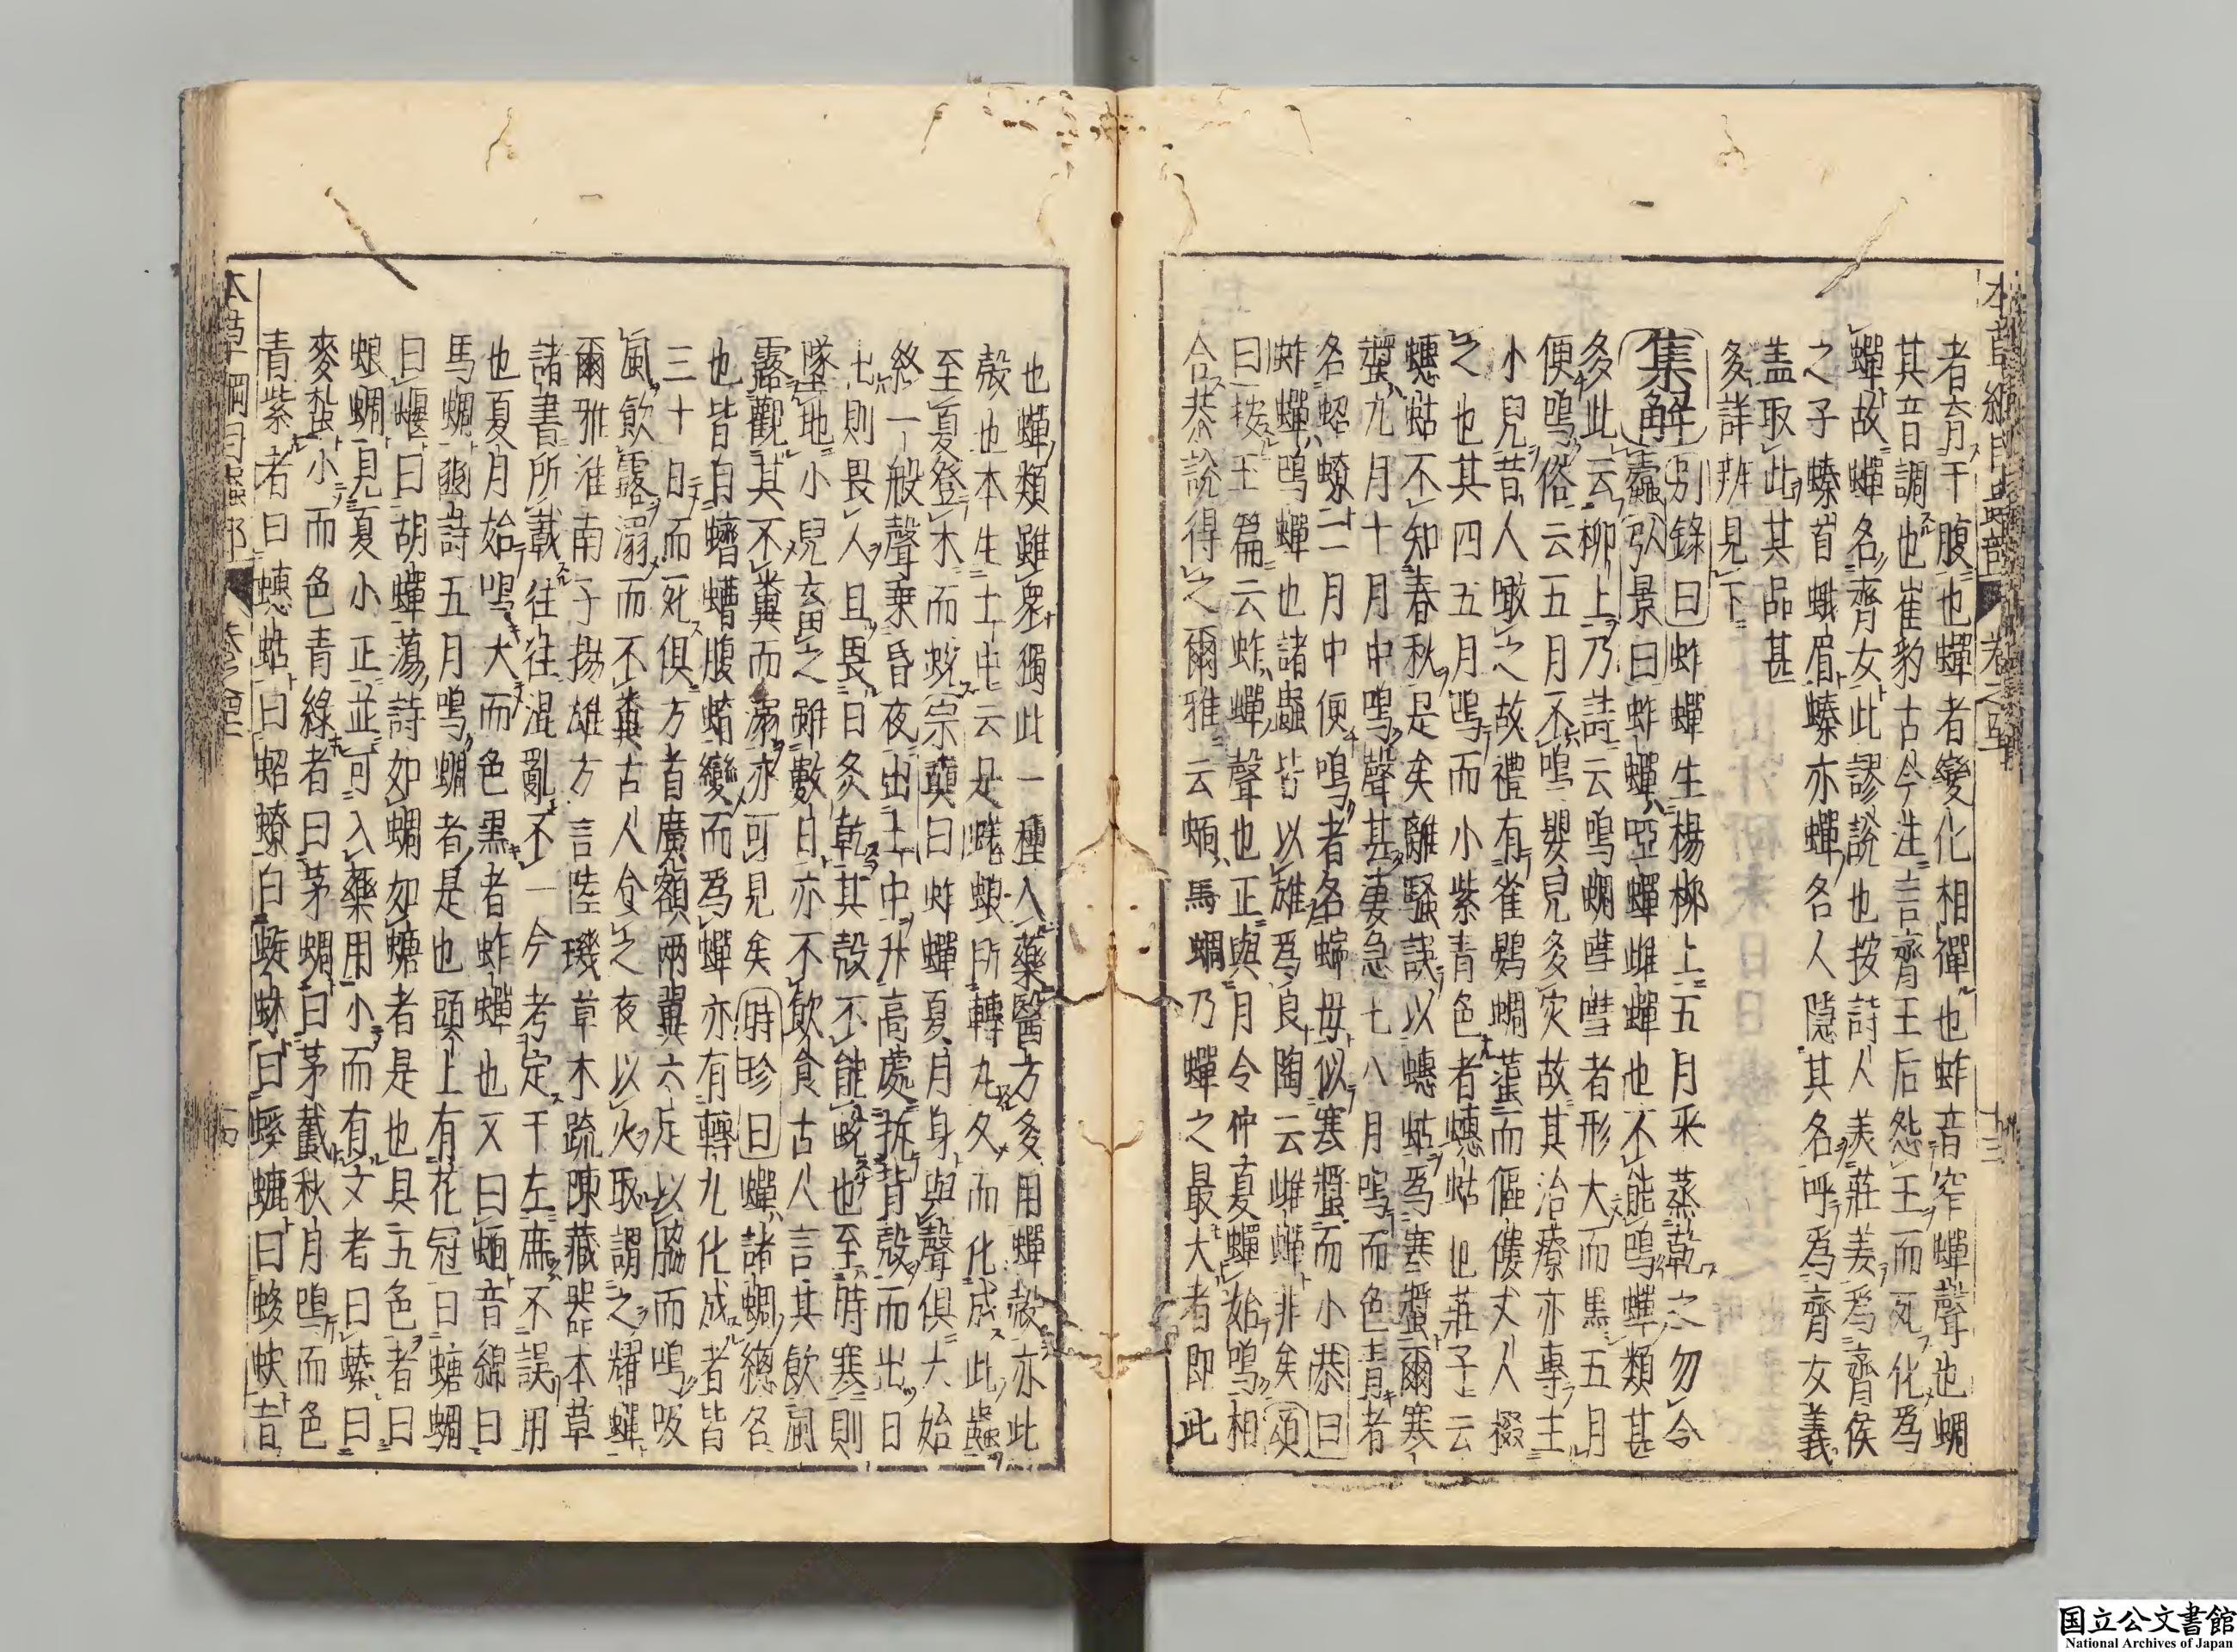 本草綱目蟲部 卷之四十一 十三
者育于腹也蟬者變化相禪也蚱音窄蟬聲也蜩
其音調也崔豹古今注言齊王后怨王而死化爲
蟬故蟬名齊女此謬說也按詩人美莊姜爲齊侯
之子螓首蛾眉螓亦蟬名人隱其名呼爲齊女義
盖取此其品甚
多詳辨見下
集解別錄曰蚱蟬生楊柳上五月采蒸乾之勿令
蠹弘景曰蚱蟬啞蟬雌蟬也不能鳴蟬類甚
多此云柳上乃詩云鳴蜩嘒嘒者形大而黒五月
便鳴俗云五月不鳴嬰兒多灾故其治療亦專主
小兒昔人噉之故禮有雀鷃蜩䗬而傴僂丈人掇
之也其四五月鳴而小紫青色者蟪蛄也莊子云
蟪蛄不知春秋是矣離騷誤以蟪蛄爲寒螿爾寒
螿九月十月中鳴聲甚凄急七八月鳴而色青者
名蛁蟟二月中便鳴者名蟀母似寒螿而小恭曰
蚱蟬鳴蟬也諸蟲皆以雄爲良陶云雌蟬非矣頌
曰按玉篇云蚱蟬聲也正與月令仲夏蟬始鳴相
合恭說得之爾雅云蝒馬蜩乃蟬之最大者即此
也蟬類雖衆獨此一種入藥醫方多用蟬殼亦此
殼也本生土中云是蜣蜋所轉丸久而化成此蟲
至夏登木而蛻宗奭曰蚱蟬夏月身與聲俱大始
終一般聲乗昏夜出土中升高處拆背殼而出日
出則畏人且畏日炙乾其殼不能蛻也至時寒則
墜地小兒畜之雖數日亦不飲食古人言其飲風
露觀其不糞而溺亦可見矣時珍曰蟬諸蜩總名
也皆自蠐螬腹蜟變而爲蟬亦有轉丸化成者皆
三十日而死俱方首廣額兩翼六足以脇而鳴吸
風飲露溺而不糞古人食之夜以火取謂之耀蟬
爾雅淮南子揚雄方言陸璣草木疏陳藏器本草
諸書所載往往混亂不一今考定于左庶不誤用
也夏月始鳴大而色黒者蚱蟬也又曰蝒音綿曰
馬蜩豳詩五月鳴蜩者是也頭上有花冠曰螗蜩
曰蝘曰胡蟬蕩詩如蜩如螗者是也具五色者曰
蜋蜩見夏小正並可入藥用小而有文者曰螓曰
麥蚻小而色青綠者曰茅蜩曰茅蠽秋月鳴而色
青紫者曰蟪蛄曰蛁蟟曰蜓蚞曰螇螰曰蛥蚗音
本草綱目蟲部 卷之四十一 十四
国立公文書館
National Archives of Japan